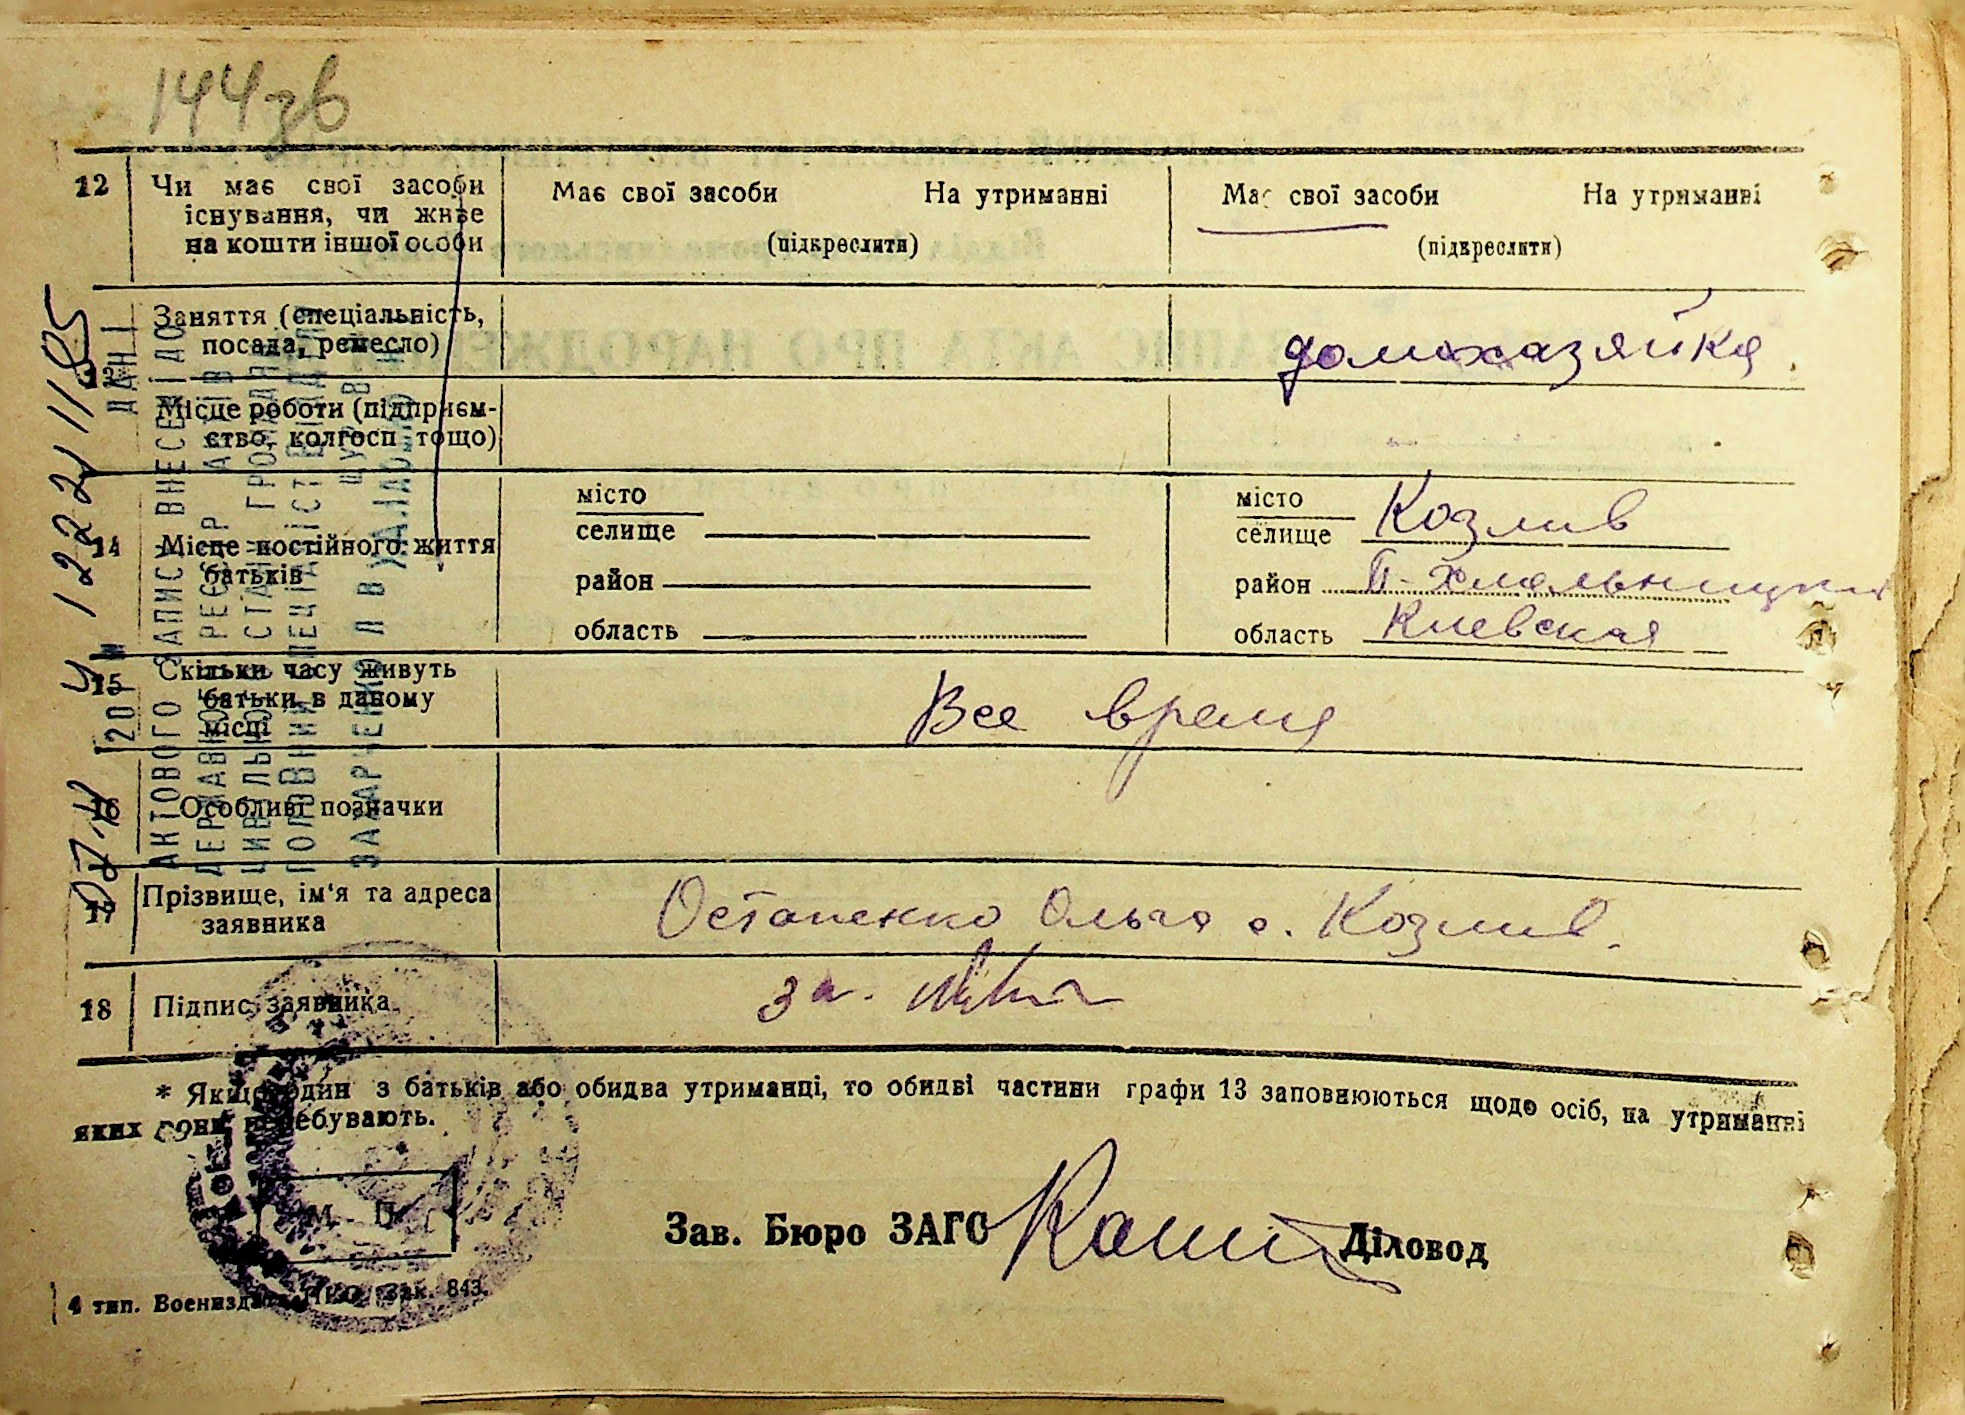 144зв
12 Чи має свої засоби існування, чи живе на кошти іншої особи
Має свої засоби На утриманні
(підкреслити)
Має свої засоби На утриманні
(підкреслити)
Заняття (спеціальність, посада, ремесло)
домохазяйка
Місце роботи (підприємство, колгосп тощо)
14 Місце постійного життя батьків
місто
селище
район
область
місто
селище Козлив
район П-Хмельницкий
область Киевская
15 Скільки часу живуть батьки в даному місці
Все время
16 Особливі позначки
17 Прізвище, ім'я та адреса заявника
Остапенко Ольга с. Козлив.
18 Підпис заявника
за.
* Якщо один з батьків або обидва утриманці, то обидві частини графи 13 заповнюються щодо осіб, на утриманні
яких вони перебувають.
М. П.
Зав. Бюро ЗАГС Діловод
4 тип. Воениздата НКО зак. 843.
ДАНІ
АКТОВОГО ЗАПИСУ ВНЕСЕНІ ДО
ДЕРЖАВНОГО РЕЄСТР
ЦИВІЛЬНОГО СТАНУ ГРОМАДЯН
ГОЛОВНИЙ СПЕЦІАЛІСТ
ЗАХАРЧЕНКО Л В